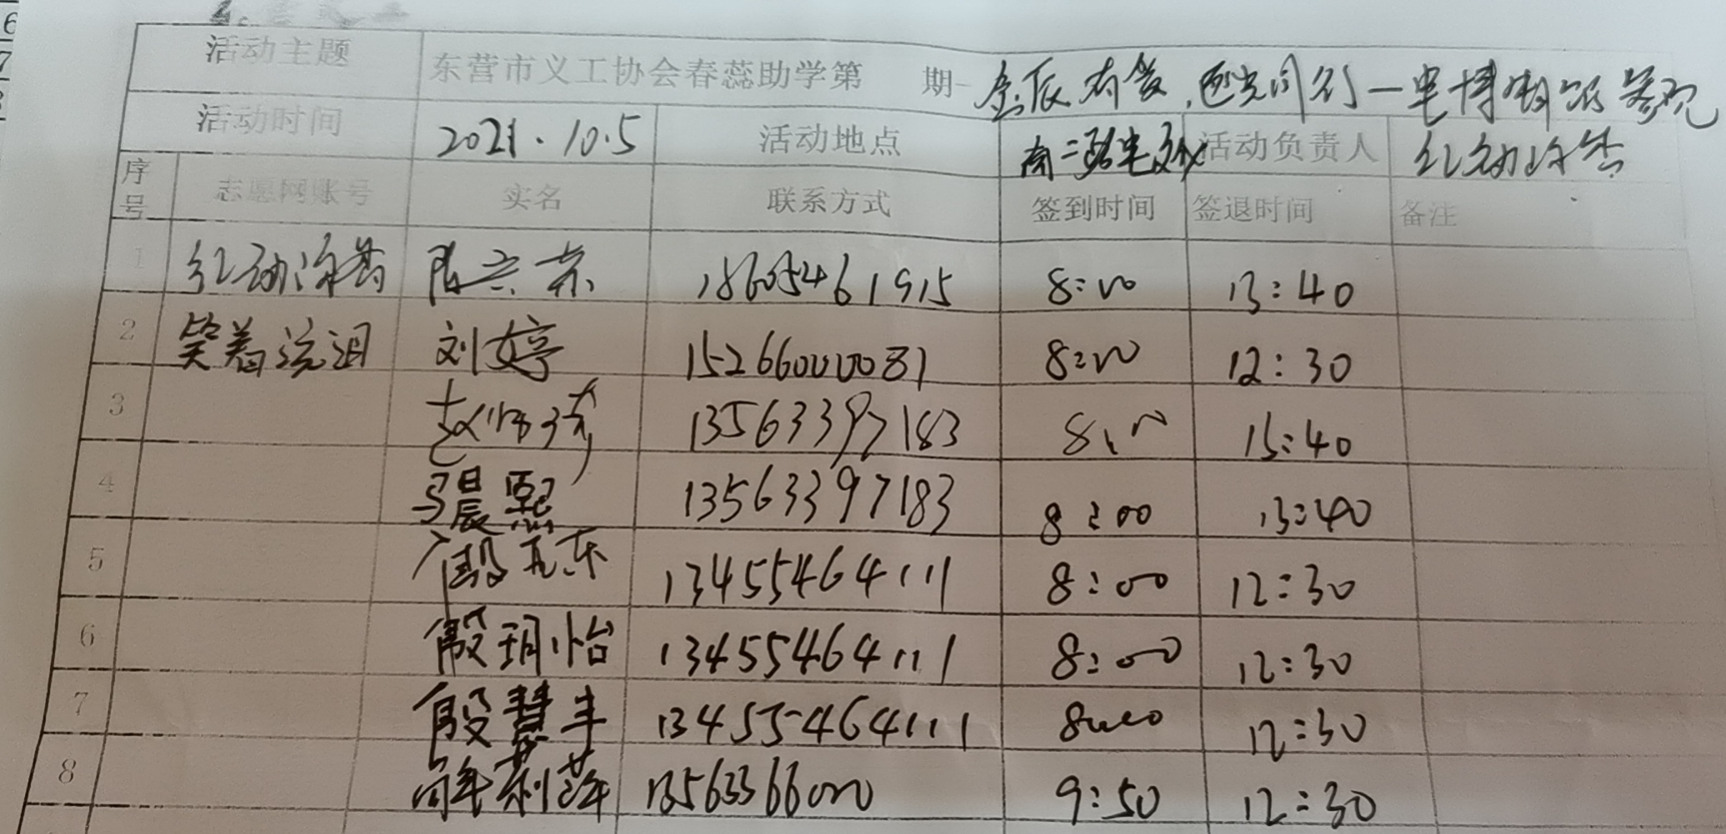 6
7
活动主题 东营市义工协会春蕊助学第 期-
活动时间 2021.10.5 活动地点 南二路 活动负责人
序号 志愿网账号 实名 联系方式 签到时间 签退时间 备注
1 红动 18605461915 8:00 13:40
2 笑着流泪 刘婷 15266000081 8:00 12:30
3 13563397183 8:00 13:40
4 晨熙 13563397183 8:00 13:40
5 殷 13455464111 8:00 12:30
6 殷玥怡 13455464111 8:00 12:30
7 殷慧丰 13455464111 8:00 12:30
8 莉萍 13563366000 9:50 12:30